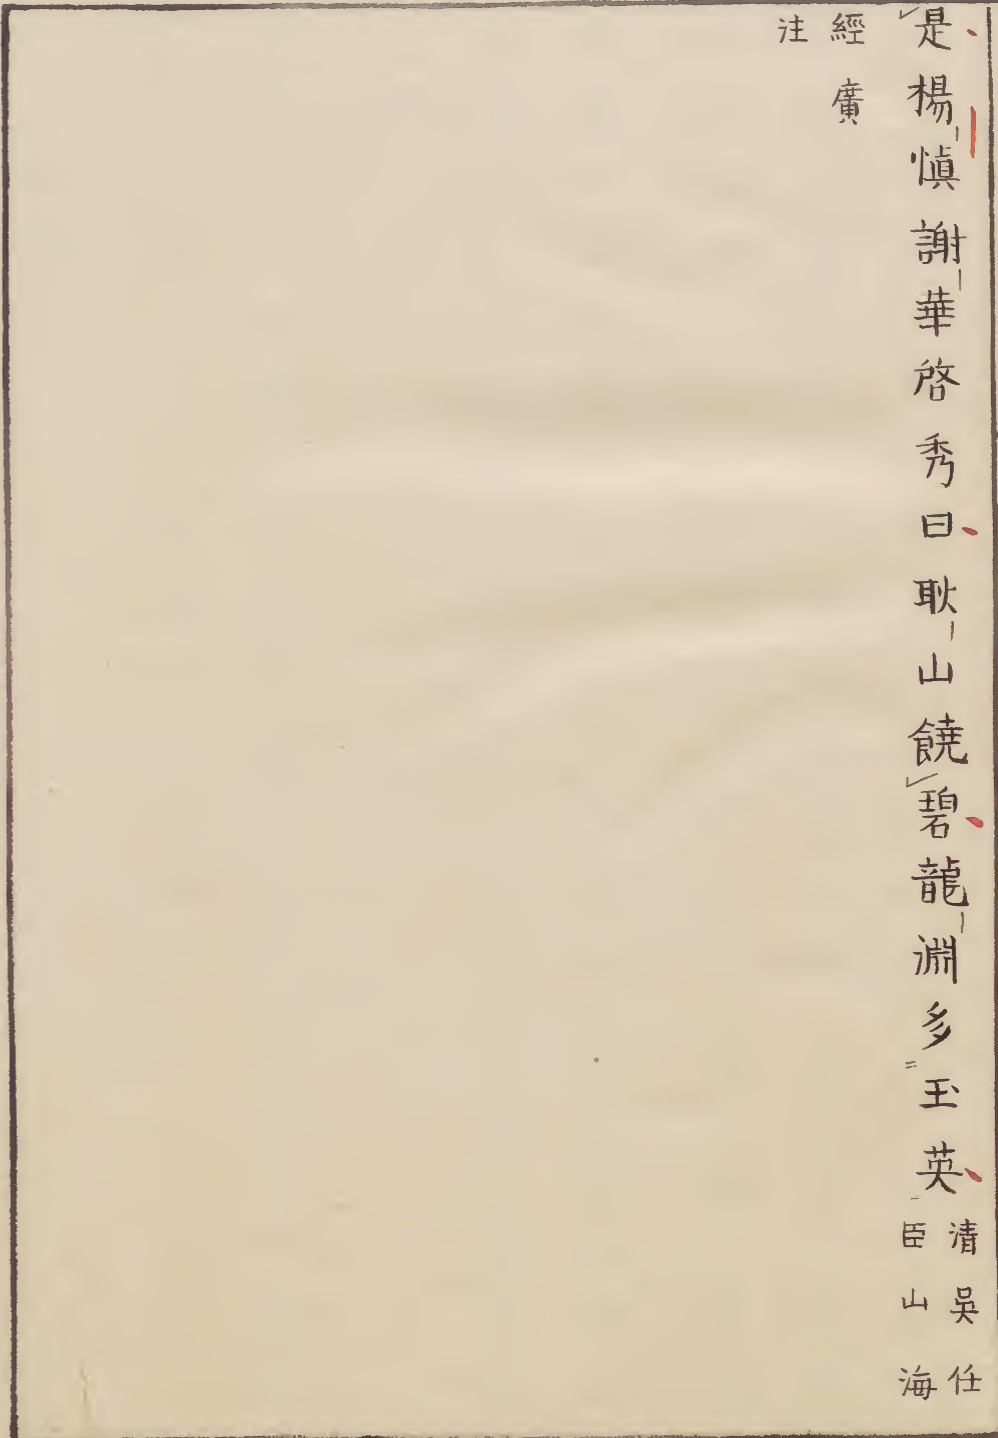 是楊慎謝華啓秀曰耿山饒碧龍淵多玉英清吳任
臣山海
經廣
注